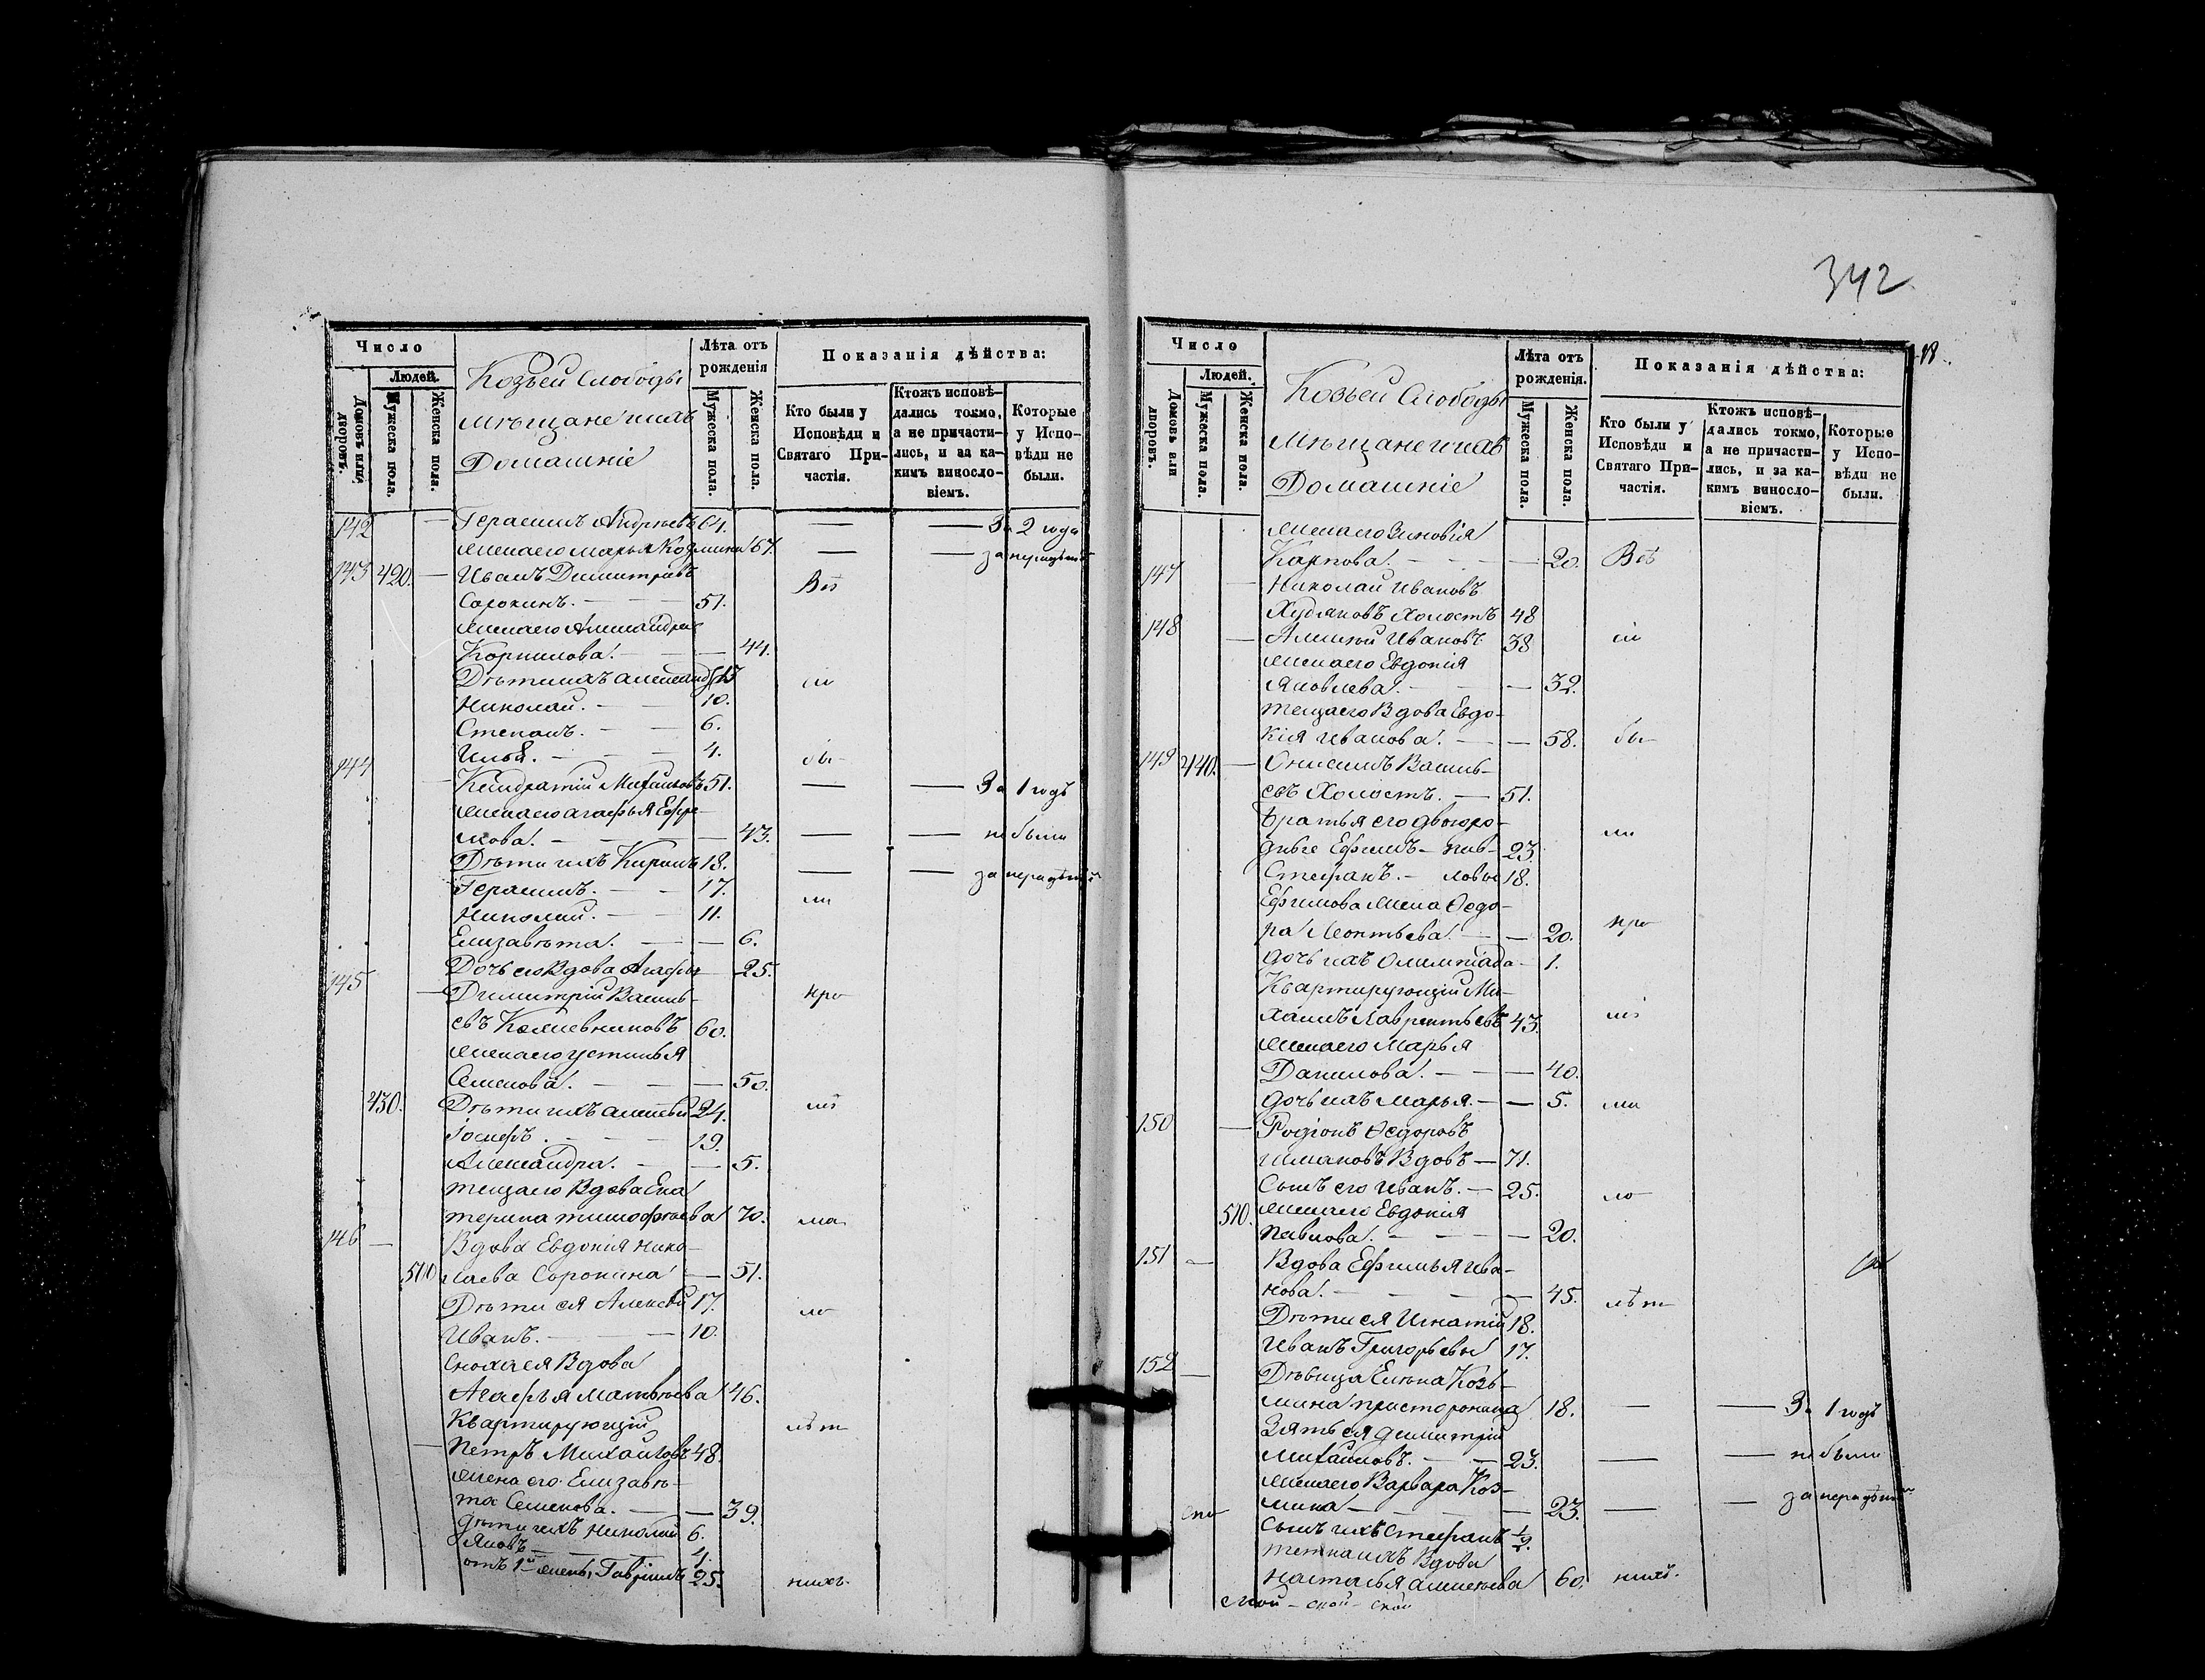 342
Число
Людей.
Домовъ или дворовъ.
Мужеска пола.
Женска пола.
Козьей Слободы
мѣщане и ихъ
Домашніе
Лѣта отъ рожденія
Мужеска пола.
Женска пола.
Показанія дѣйства:
Кто были у Исповѣди и Святаго Причастія.
Ктожъ исповѣдались токмо, а не причастились, и за какимъ винословіемъ.
Которые у Исповѣди не были.
142 — Герасимъ Андреевъ 64. — — За 2 года
жена его Марья Козмина 67. — — за нерадѣніе
143 420. — Иванъ Димитріевъ Всѣ
Сорокинъ. — — 51.
жена его Александра
Корнилова. — — 44.
Дѣти ихъ Александръ 13 сіи
Николай. — — 10.
Степанъ. — — 6.
Илья. — — 4. бы-
144 — Кондратій Михайловъ 51. — — За 1 годъ
жена его Агафья Ефре-
мова. — — 43. — — не были
Дѣти ихъ Кирилъ 18. — — за нерадѣніе
Герасимъ. — — 17. ли
Николай. — — 11.
Елизавета. — — 6.
Дочь его Вдова Агафья — 25.
145 — Димитрій Василь- про
евъ Кожевниковъ 60.
жена его Устинья
Семенова. — — 50.
430. Дѣти ихъ Алексѣй 24.
Іосифъ. — — 19.
Александра. — — 5.
теща его Вдова Ека-
терина Тимофѣева 70.
146 — Вдова Евдокія Нико-
лаева Сорокина — 51.
Дѣти ея Алексѣй 17. ло
Иванъ. — — 10.
сноха ея Вдова
Агафья Матвѣева 46.
Квартирующій лѣт
— Петръ Михайловъ 48.
жена его Елизаве-
та Семенова. — — 39.
дѣти ихъ Николай 6.
Яковъ — — 4.
отъ 1й жены, Гавріилъ 25. нихъ.
18.
Число
Людей.
Домовъ или дворовъ.
Мужеска пола.
Женска пола.
Козьей Слободы
Мѣщане и ихъ
Домашніе
Лѣта отъ рожденія.
Мужеска пола.
Женска пола.
Показанія дѣйства:
Кто были у Исповѣди и Святаго Причастія.
Ктожъ исповѣдались токмо, а не причастились, и за какимъ винословіемъ.
Которые у Исповѣди не были.
жена его Зиновія
Карпова. — — 20. Всѣ
147 — Николай Ивановъ
Худяковъ Холостъ 48
148 — Алексѣй Ивановъ 38 сіи
жена его Евдокія
Яковлева. — — 32.
теща его Вдова Евдо-
кія Иванова. — — 58. бы-
149 440. — Онисимъ Василь-
евъ Холостъ. — 51.
братья его двоюро- ли
дные Ефимъ — 23.
Стефанъ. — 18.
Ефимова жена Ѳедо-
ра Леонтьева. — — 20. про
дочь ихъ Олимпіада — 1.
Квартирующій Ми-
хаилъ Лаврентьевъ 43.
жена его Марья
Данилова. — — 40.
дочь ихъ Марья. — — 5.
150 — Родіонъ Ѳедоровъ
Вдовъ — 71.
Сынъ его Иванъ. — 25. ло
510. жена его Евдокія
Павлова. — — 20.
151 — Вдова Ефимья Ива-
нова. — — 45. лѣт
Дѣти ея Игнатій 18.
Иванъ Григорьевы 17.
152 — Дѣвица Елена Козь-
мина 18. — — За 1 годъ
Зять ея Димитрій
Михайловъ. — — 23. — — не были
жена его Варвара Коз-
мина — — 23. — — за нерадѣніе
сынъ ихъ Стефанъ ½.
тетка ихъ Вдова
Наталья Алексѣева 60. нихъ.